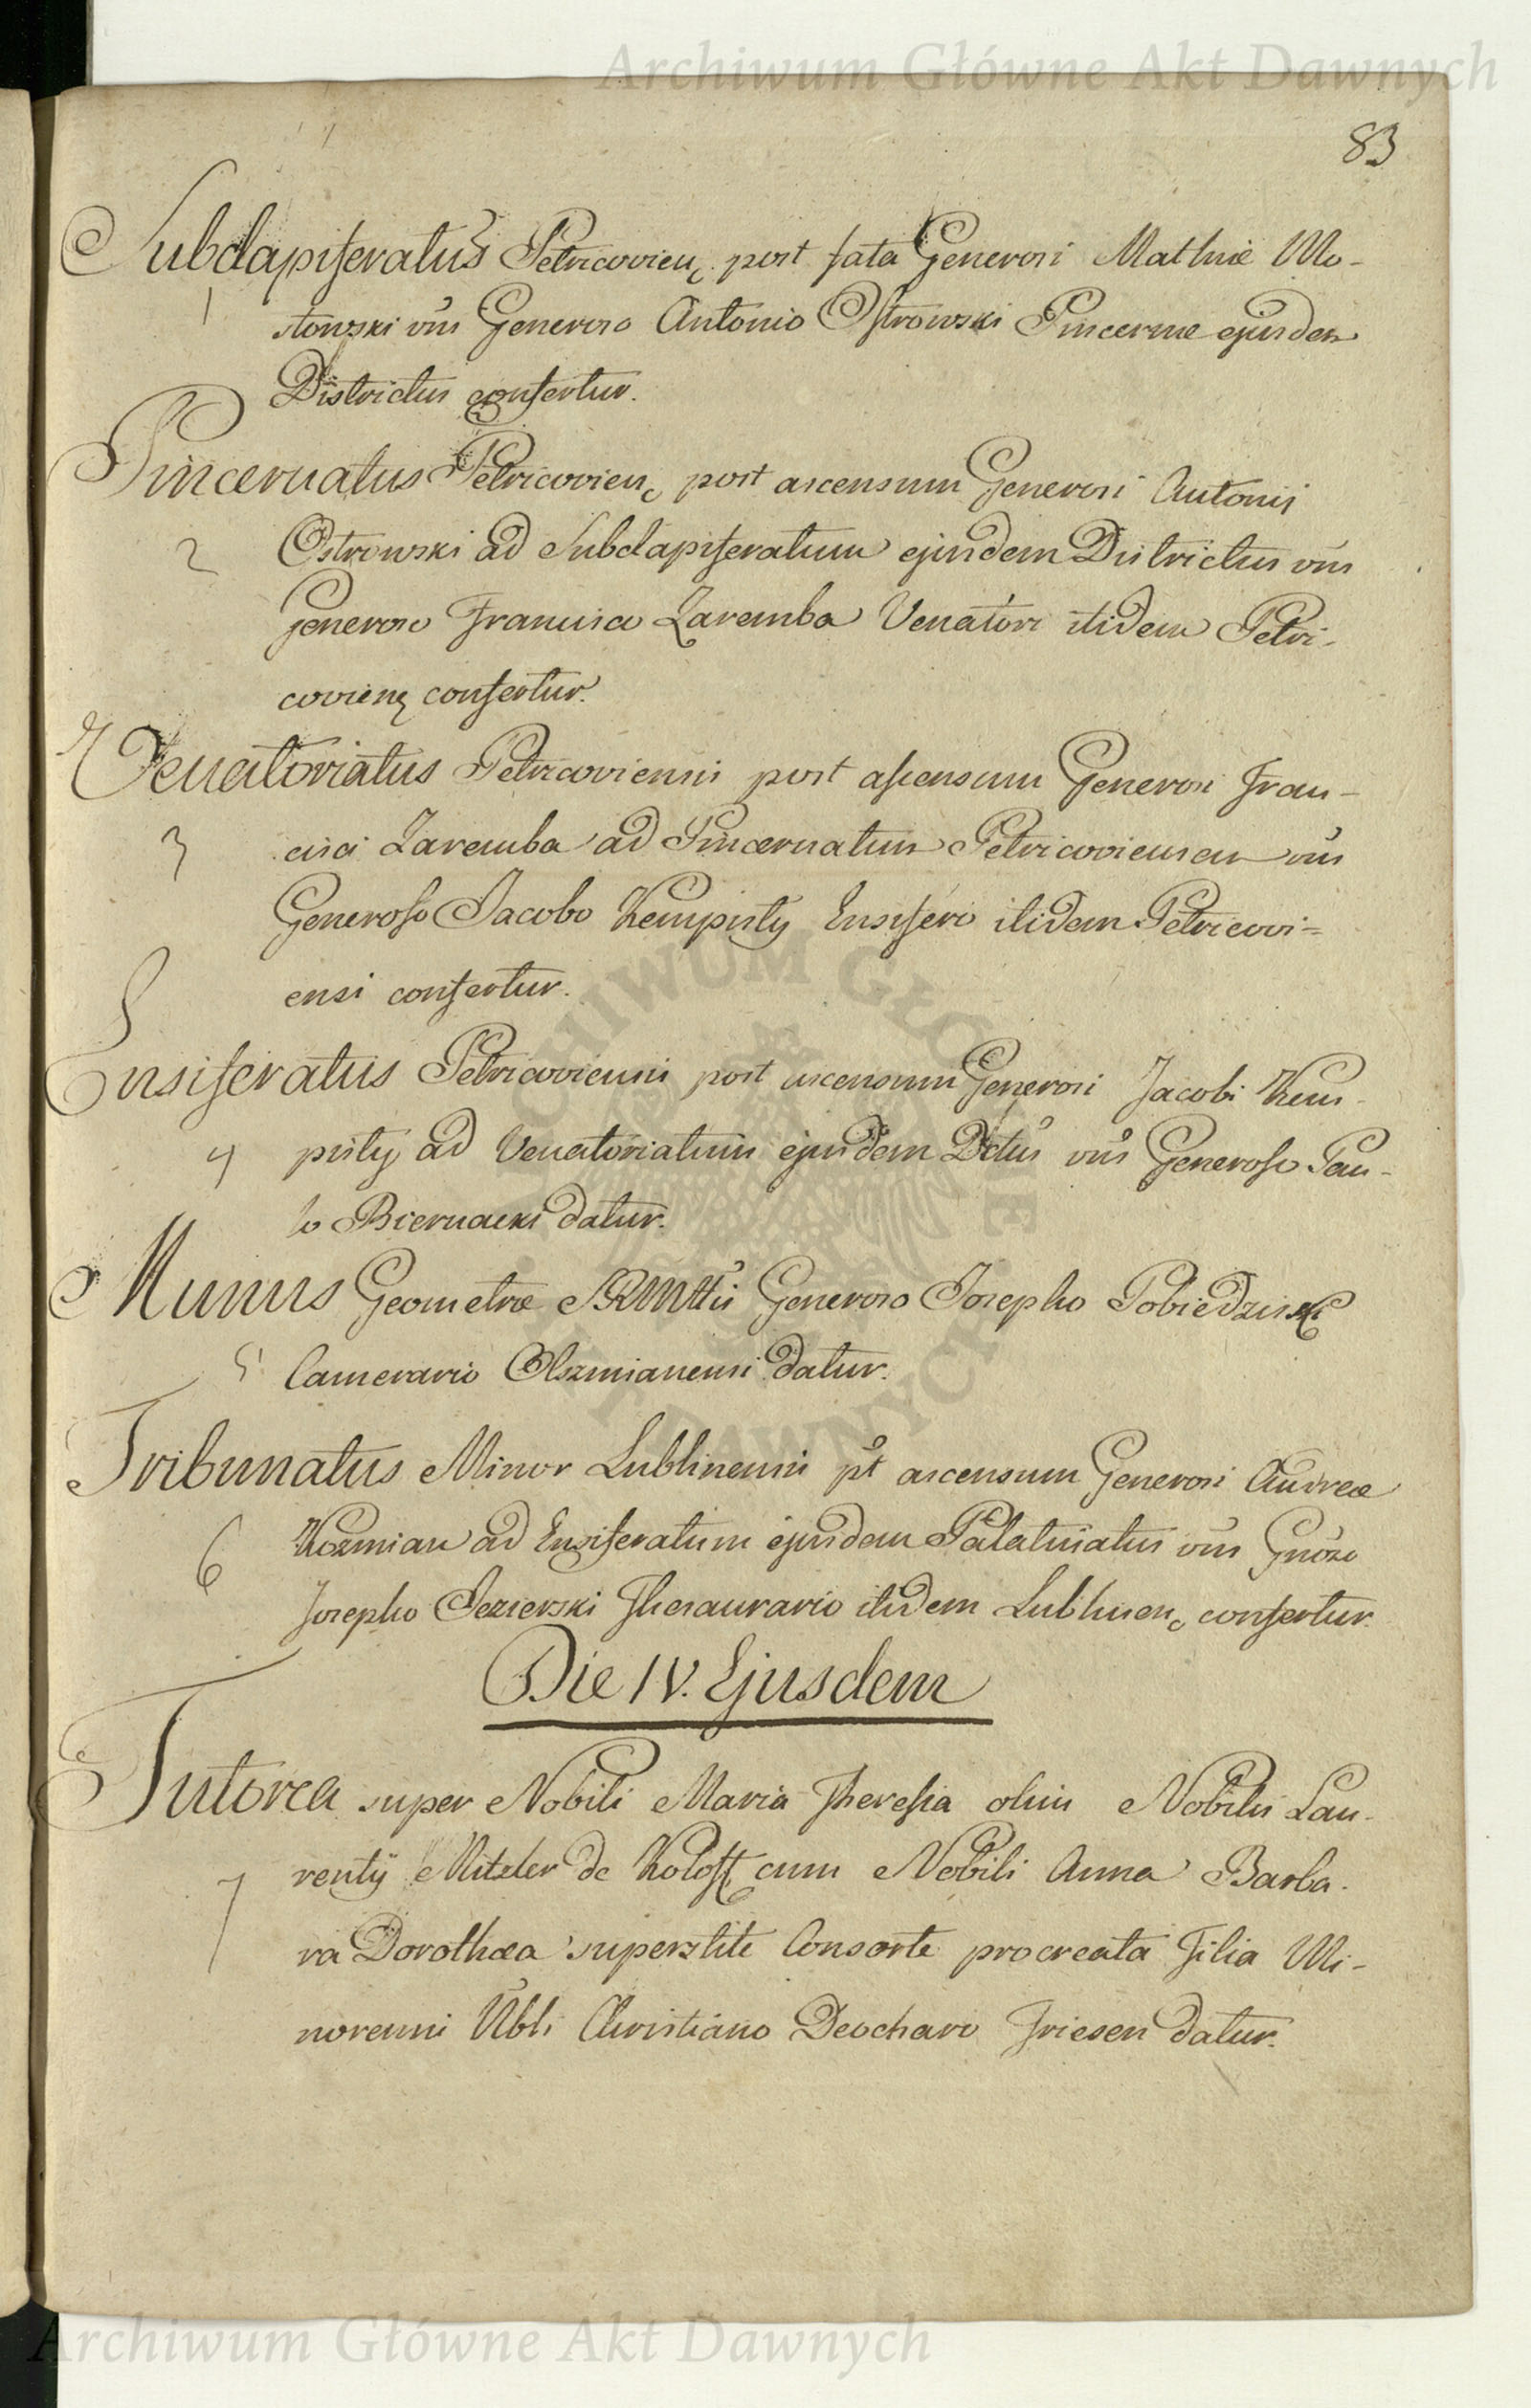 Archiwum Główne Akt Dawnych
83
Subdapiferatus Petricovien, post fata Generosi Mathiæ Mo-
stowski vŭs Generoso Antonio Ostrowski Pincernæ ejusdem
Districtus confertur.
1
Pincernatus Petricovien, post ascensum Generosi Antonij
2
Ostrowski ad Subdapiferatum ejusdem Districtus vŭs
Generoso Francisco Zaremba Venatori itidem Petri-
covien, confertur.
Venatoriatus Petricoviensis post ascensum Generosi Fran-
3
cisci Zaremba ad Pincernatum Petricoviensem vŭs
Generoso Jacobo Kempisty Ensifero itidem Petricovi=
ensi confertur.
Ensiferatus Petricoviensis post ascensum Generosi Jacobi Kem-
4
pisty ad Venatoriatum ejusdem Dctus vŭs Generoso Pau-
lo Biernacki datur.
Munus Geometræ SRMttis Generoso Josepho Pobiedzinski
5
Camerario Oszmianensi datur.
Tribunatus Minor Lublinensis pt ascensum Generosi Andreæ
6
Kozmian ad Ensiferatum ejusdem Palatinatus vŭs Gnoso
Josepho Jezierski Thesaurario itidem Lublinen, confertur.
Die IV. Ejusdem
Tutorea super Nobili Maria Theresia olim Nobilis Lau-
7
rentij Mitzler de Koloff, cum Nobili Anna Barba-
ra Dorothæa superstite Consorte procreata Filia Mi-
norenni Nbli Christiano Deocharo Friesen datur.
ARCHIWUM GŁÓWNE AKT DAWNYCH
Archiwum Główne Akt Dawnych